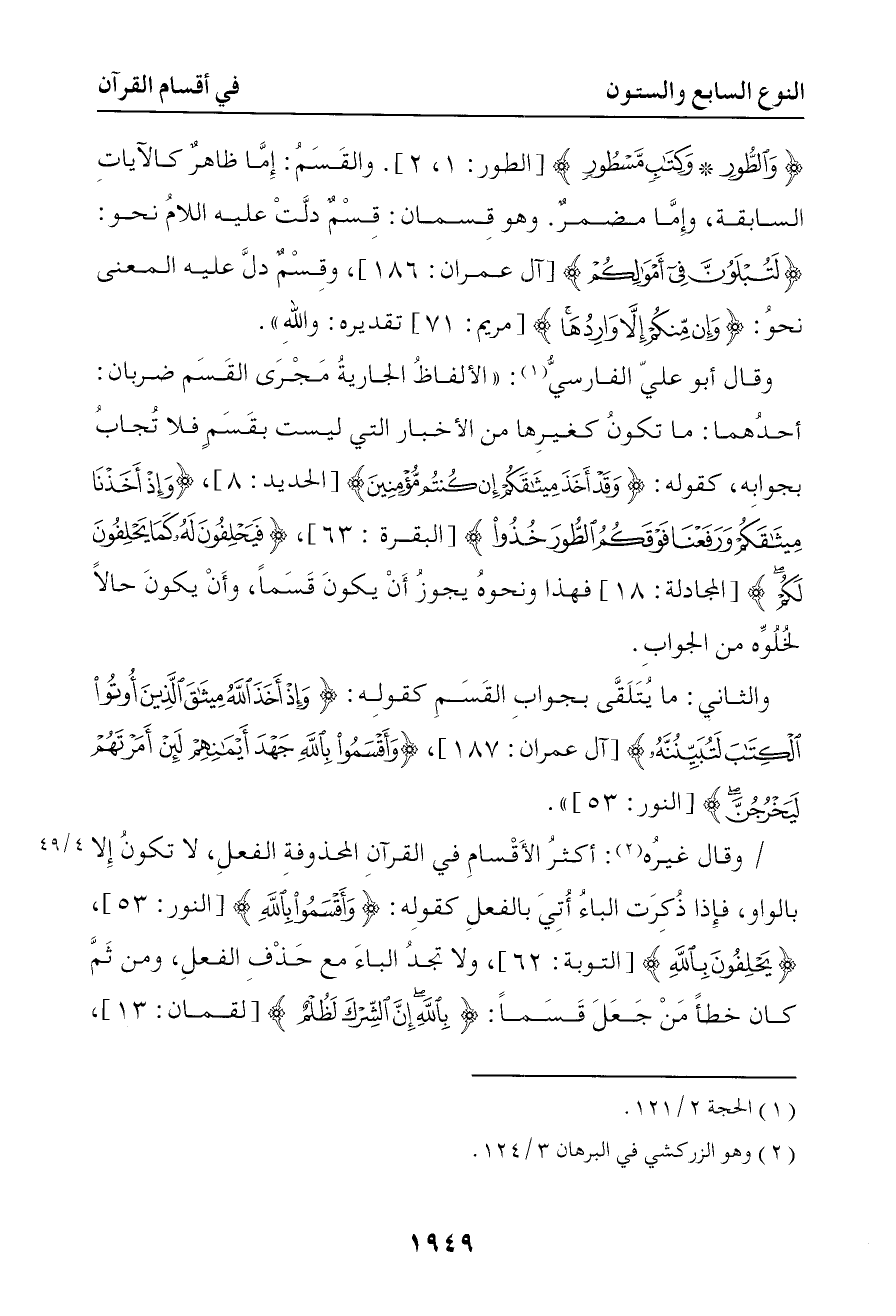 النوع السابع والستون في أقسام القرآن
﴿ وَٱلطُّورِ * وَكِتَٰبٍ مَّسْطُورٍ ﴾ [الطور: ١، ٢]. والقَسَمُ: إمَّا ظاهرٌ كالآيات
السابقة، وإمَّا مضمرٌ. وهو قسمان: قِسْمٌ دلَّتْ عليه اللامُ نحو:
﴿ لَتُبْلَوُنَّ فِىٓ أَمْوَٰلِكُمْ ﴾ [آل عمران: ١٨٦]، وقِسْمٌ دلَّ عليه المعنى
نحوُ: ﴿ وَإِن مِّنكُمْ إِلَّا وَارِدُهَا ۚ ﴾ [مريم: ٧١] تقديره: واللهِ».
وقال أبو عليّ الفارسيُّ(١): «الألفاظُ الجاريةُ مَجْرَى القَسَم ضربان:
أحدُهما: ما تكونُ كغيرها من الأخبار التي ليست بقَسَمٍ فلا تُجابُ
بجوابه، كقوله: ﴿ وَقَدْ أَخَذَ مِيثَٰقَكُمْ إِن كُنتُم مُّؤْمِنِينَ ﴾ [الحديد: ٨]، ﴿ وَإِذْ أَخَذْنَا
مِيثَٰقَكُمْ وَرَفَعْنَا فَوْقَكُمُ ٱلطُّورَ خُذُوا۟ ﴾ [البقرة: ٦٣]، ﴿ فَيَحْلِفُونَ لَهُۥ كَمَا يَحْلِفُونَ
لَكُمْ ۖ ﴾ [المجادلة: ١٨] فهذا ونحوهُ يجوزُ أنْ يكونَ قَسَماً، وأنْ يكونَ حالاً
لخُلُوِّه من الجواب.
والثاني: ما يُتَلَقَّى بجوابِ القَسَمِ كقوله: ﴿ وَإِذْ أَخَذَ ٱللَّهُ مِيثَٰقَ ٱلَّذِينَ أُوتُوا۟
ٱلْكِتَٰبَ لَتُبَيِّنُنَّهُۥ ﴾ [آل عمران: ١٨٧]، ﴿ وَأَقْسَمُوا۟ بِٱللَّهِ جَهْدَ أَيْمَٰنِهِمْ لَئِنْ أَمَرْتَهُمْ
لَيَخْرُجُنَّ ۖ ﴾ [النور: ٥٣]».
/ وقال غيرُه(٢): أكثرُ الأَقْسام في القرآن المحذوفة الفعلِ، لا تكونُ إلا ٤٩/٤
بالواو، فإذا ذُكِرَت الباءُ أُتيَ بالفعلِ كقوله: ﴿ وَأَقْسَمُوا۟ بِٱللَّهِ ﴾ [النور: ٥٣]،
﴿ يَحْلِفُونَ بِٱللَّهِ ﴾ [التوبة: ٦٢]، ولا تجدُ الباءَ مع حَذْفِ الفعلِ، ومن ثَمَّ
كان خطأً مَنْ جَعَلَ قَسَماً: ﴿ بِٱللَّهِ ۖ إِنَّ ٱلشِّرْكَ لَظُلْمٌ ﴾ [لقمان: ١٣]،
(١) الحجة ١٢١/٢.
(٢) وهو الزركشي في البرهان ١٢٤/٣.
١٩٤٩